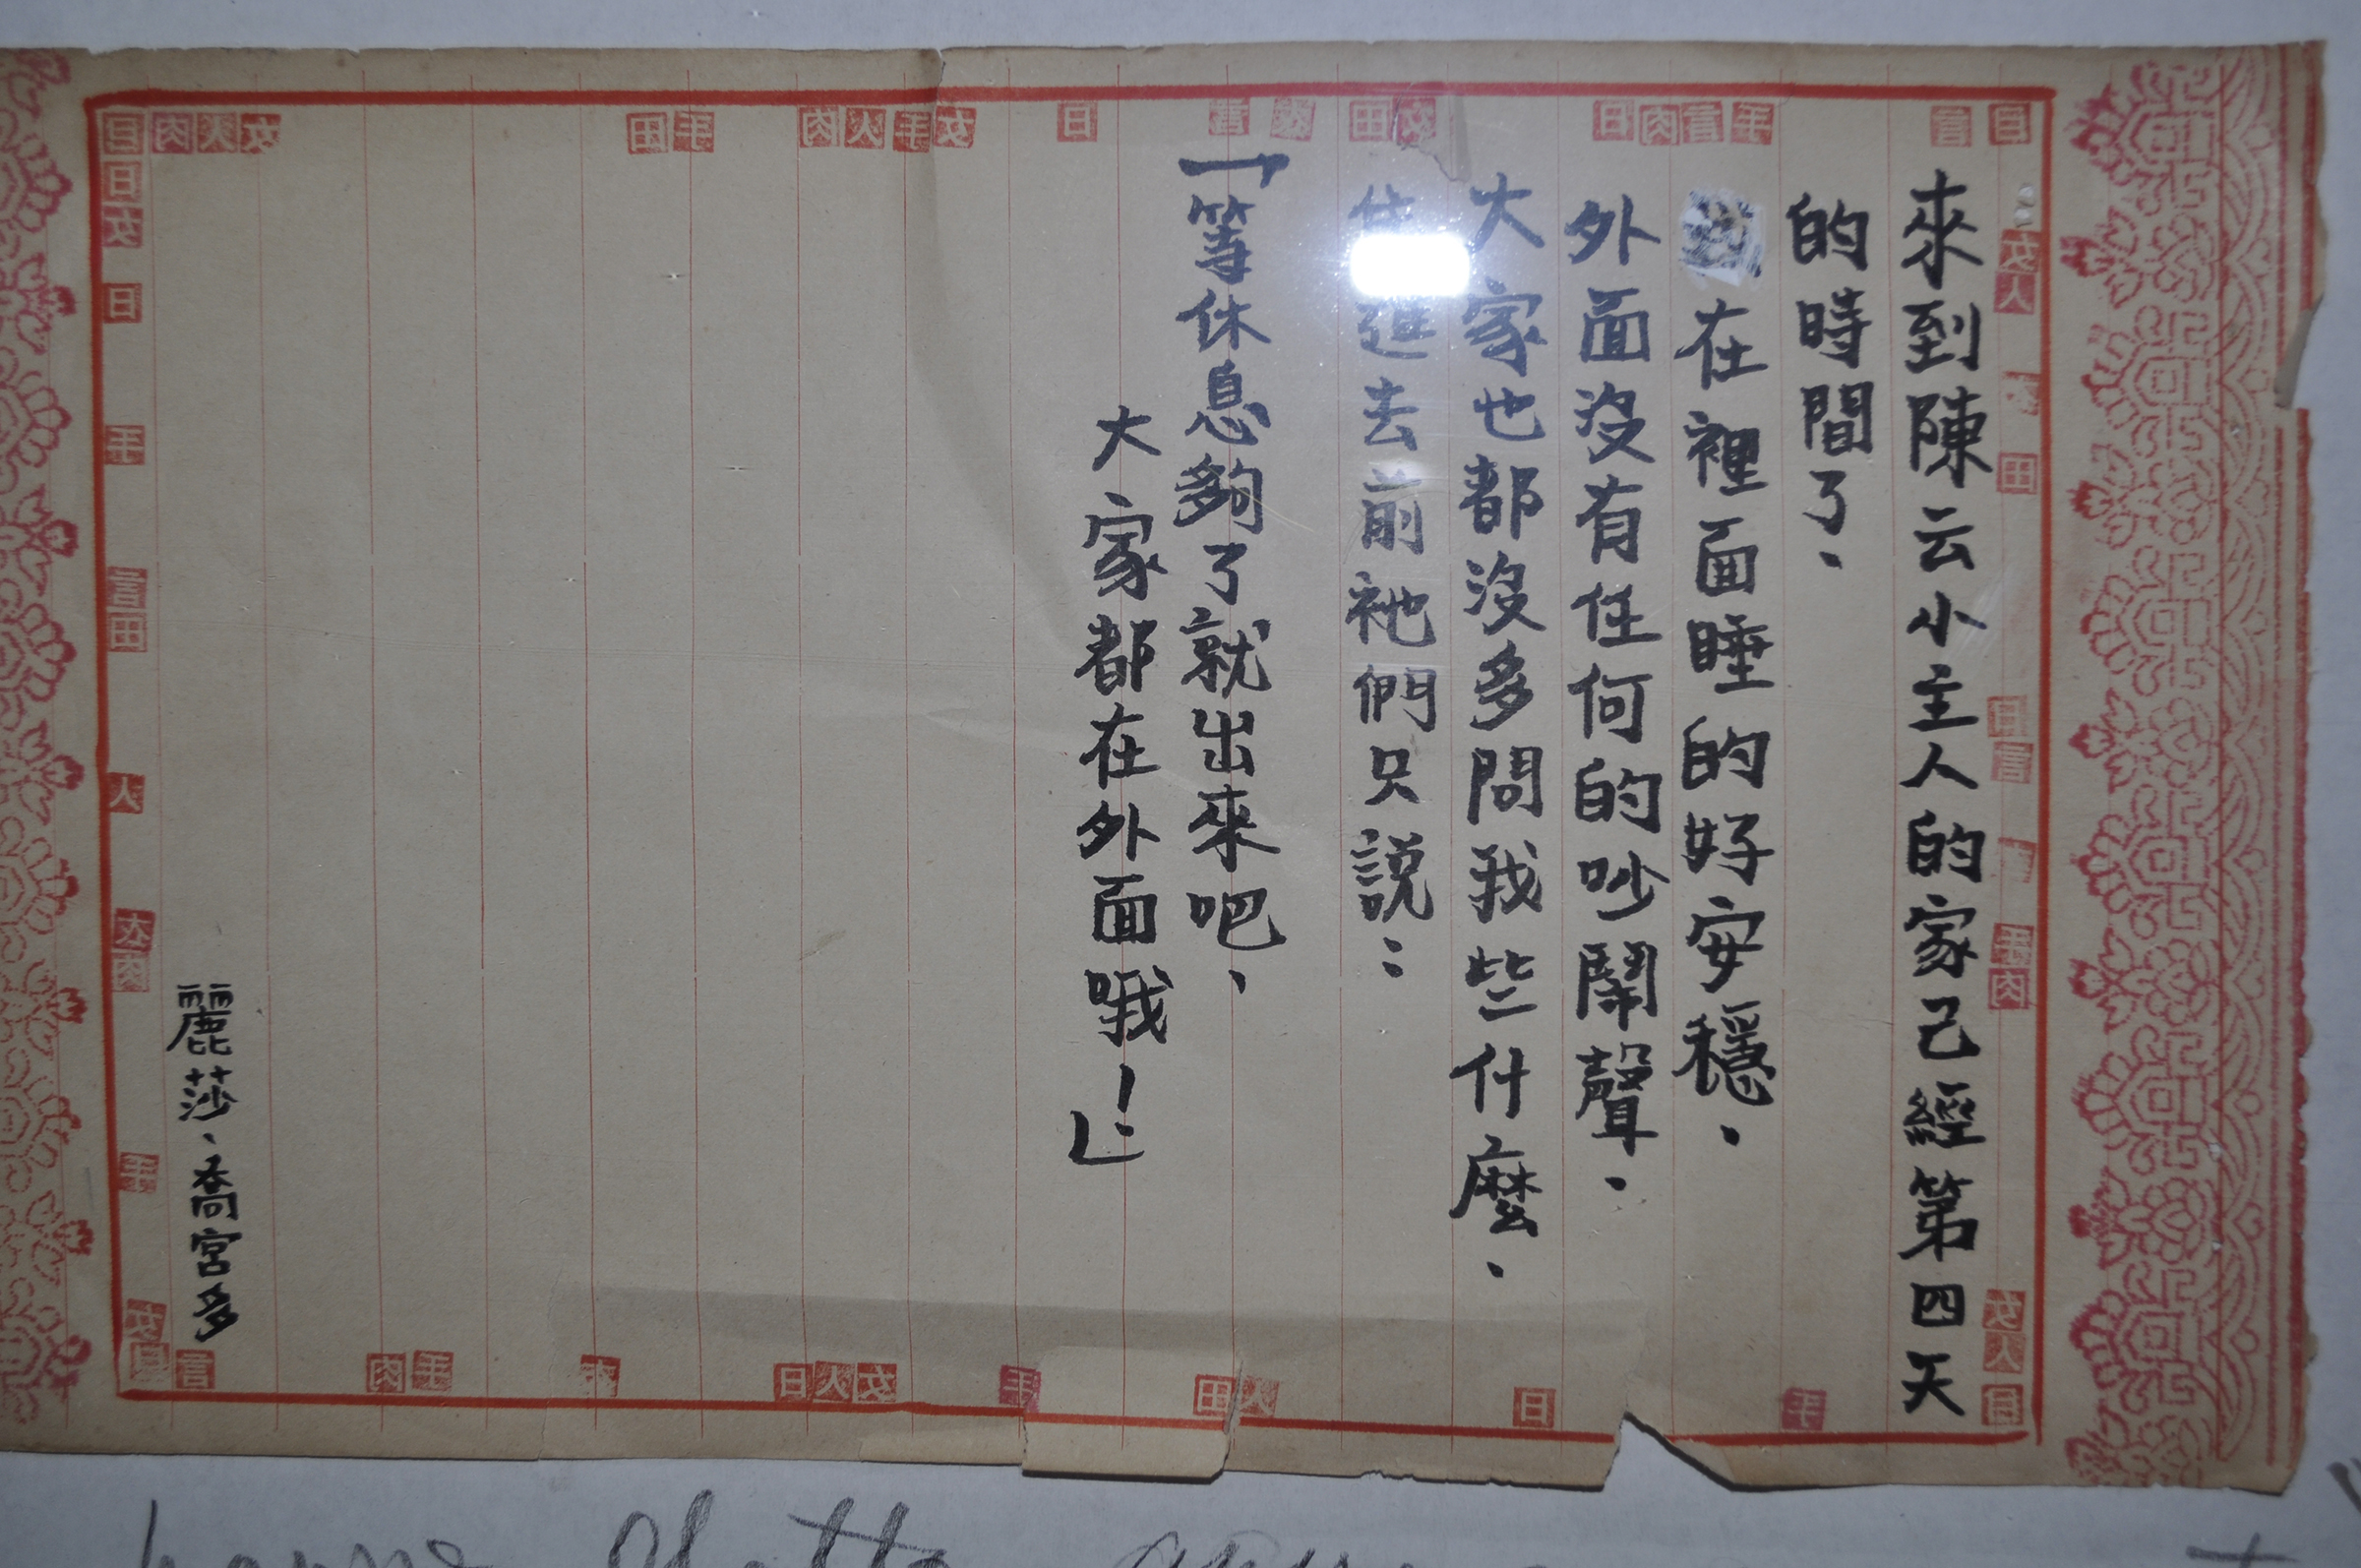 來到陳云小主人的家己經第四天
的時間了．
在裡面睡的好安穩．
外面沒有任何的吵鬧聲．
大家也都沒多問我些什麼．
進去前祂們只説：
「等休息夠了就出來吧、
大家都在外面哦！」
麗莎．喬宮多